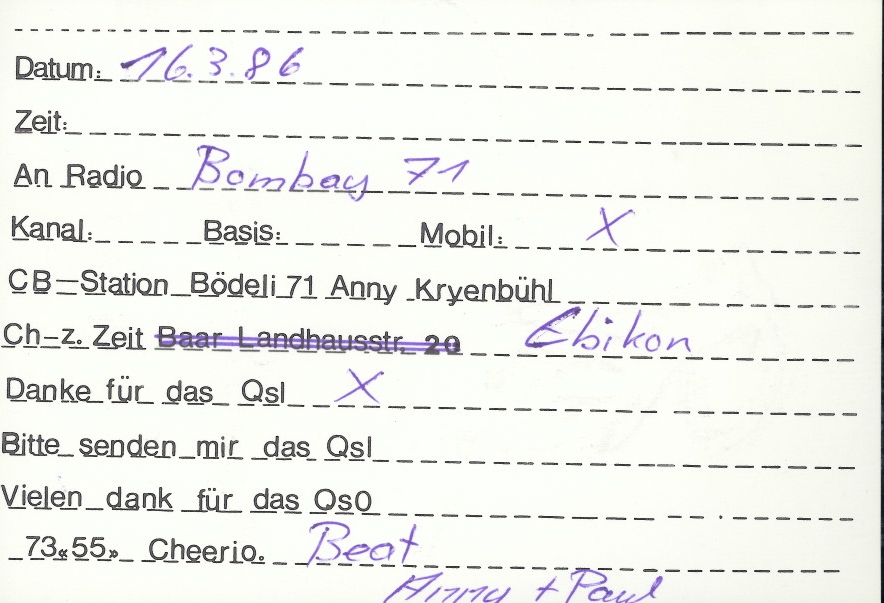 Datum: 16.3.86
Zeit:
An Radio Bombay 71
Kanal: Basis: Mobil: X
CB-Station Bödeli 71 Anny Kryenbühl
Ch-z. Zeit Baar Landhausstr. 20 Ebikon
Danke für das Qsl X
Bitte senden mir das Qsl
Vielen dank für das QsO
73«55» Cheerio. Beat
Anny + Paul